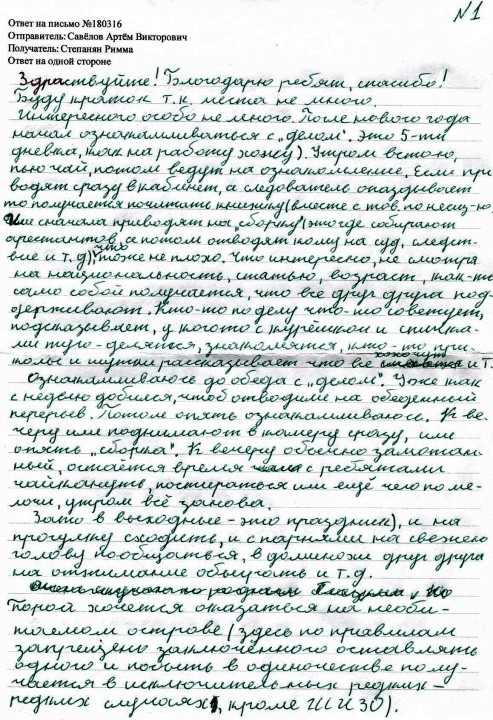 №1
Ответ на письмо №180316
Отправитель: Савёлов Артём Викторович
Получатель: Степанян Римма
Ответ на одной стороне
Здраствуйте! Благодарю ребят, спасибо!
Буду краток т.к. места не много.
Интересного особо не много. После нового года
начал ознакамливаться с „делом". Это 5-ти
дневка, как на работу хожу). Утром встаю,
пью чай, потом ведут на ознакомление. Если при
водят сразу в кабинет, а следователь опаздывает
то получается почитать книжку (вместе с тов. по несщ-ю).
Или сначала приводят на „сборку" (это где собирают
арестантов, а потом отводят кому на суд, следст-
вие и т.д), это тоже не плохо. Что интересно, не смотря
на национальность, статью, возраст, как-то
само собой получается, что все друг друга под-
держивают. Кто-то по делу что-то советует,
подсказывает, у кого то с курёшкой и спичка-
ми туго - делятся, знакомятся, кто-то при-
колы и шутки рассказывает что все хохочут и т.
Ознакамливаюсь до обеда с „делом". Уже как
с неделю добился, чтоб отводили на обеденный
перерыв. Потом опять ознакамливаюсь. К ве-
черу или поднимают в камеру сразу, или
опять „сборка". К вечеру обычно замотан-
ный, остаётся время с ребятами
чайкануть, постираться или ещё чего по ме-
лочи, утром всё заново.
Зато в выходные - это праздник), и на
прогулку сходить, и с парнями на свежею
голову пообщаться, в домино или друг друга
на отжимание обыграть и т.д.
Порой хочется оказаться на необи-
таемом острове (здесь по правилам
запрещено заключённого оставлять
одного и побыть в одиночестве полу-
чается в исключительных редких-
редких случаях, кроме ШИЗО).